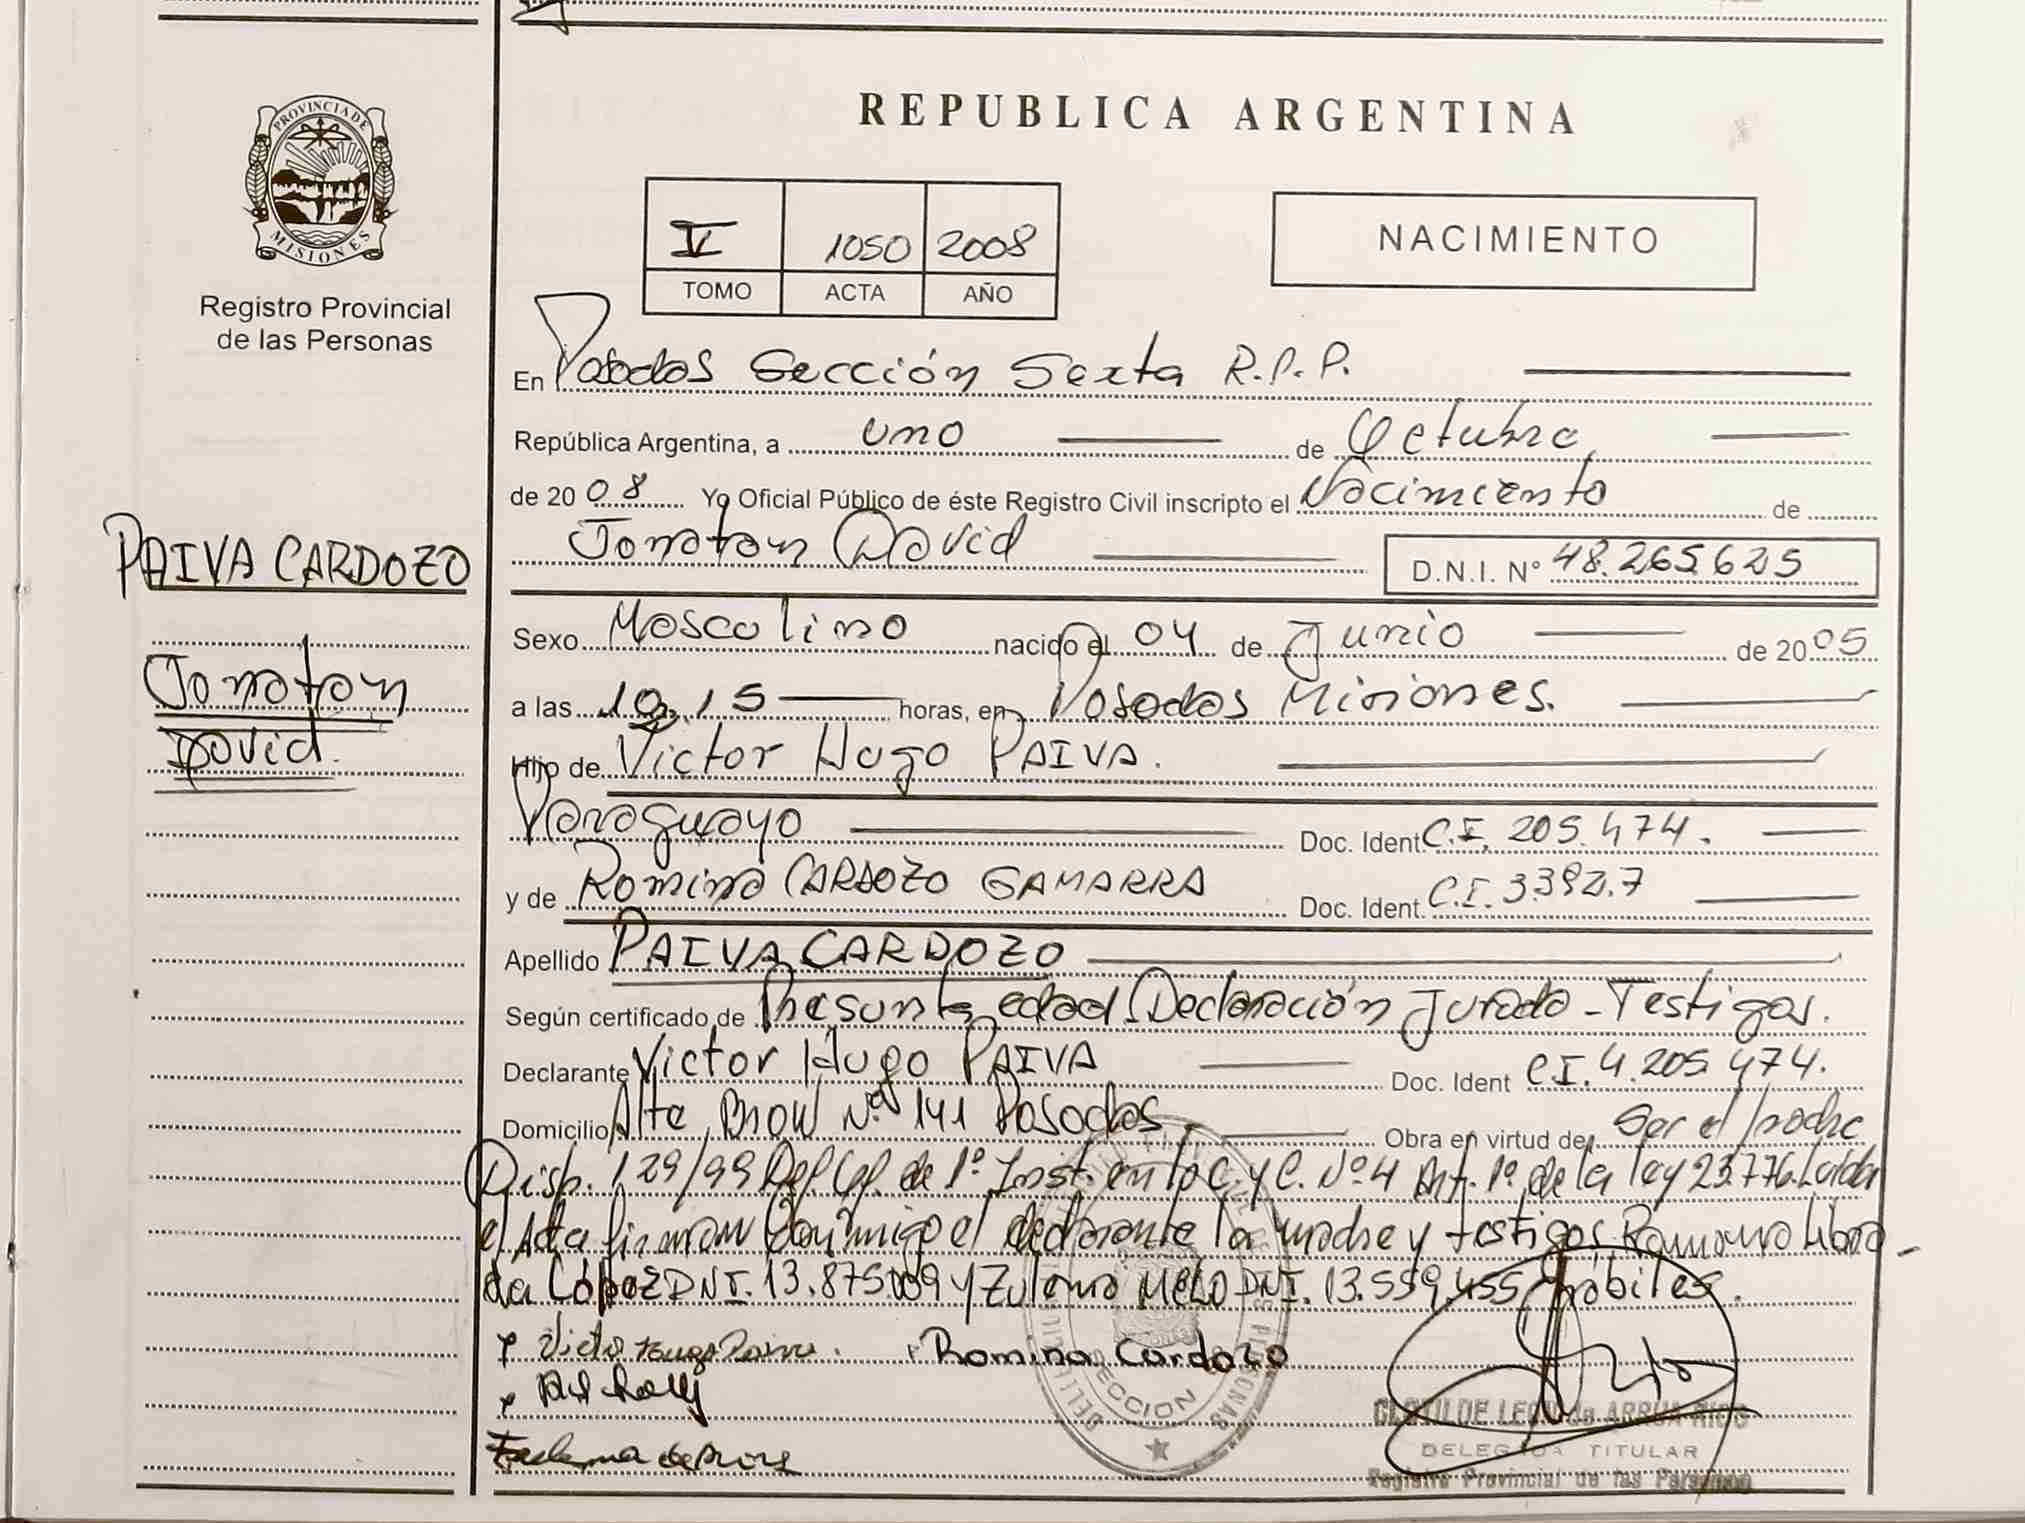 PROVINCIA DE
MISIONES
Registro Provincial
de las Personas
PAIVA CARDOZO
Jonatan
David.
REPUBLICA ARGENTINA
V 1050 2008
TOMO ACTA AÑO
NACIMIENTO
En Posadas Sección Sexta R.P.P.
República Argentina, a uno de Octubre
de 2008 Yo Oficial Público de éste Registro Civil inscripto el Nacimiento de
Jonatan David D.N.I. N° 48.265625
Sexo Masculino nacido el 04 de Junio de 2005
a las 10,15 horas, en Posadas Misiones.
Hijo de Victor Hugo PAIVA.
Paraguayo Doc. Ident C.I. 205.474.
y de Romina CARDOZO GAMARRA Doc. Ident. C.I. 3.392.7
Apellido PAIVA CARDOZO
Según certificado de Presunta edad-Declaración Jurada-Testigos.
Declarante Victor Hugo PAIVA Doc. Ident C.I. 4.205.474.
Domicilio Alte Brow N° 141 Posadas Obra en virtud de Ser el padre
Disp. 129/99 Def. Of. de 1° Inst. en lo C. y C. N°4 Art. 1° de la ley 23.776. Leida
el Acta firman Conmigo el declarante la madre y testigos Ramona Libra-
da López DNI. 13.875.009 y Zulema MELO DNI. 13.559.455 hábiles.
Victor Hugo Paiva. Romina Cardozo
SECCION
PERSONAS
CLOTILDE LEON de ARRUA RIOS
DELEGADA TITULAR
Registro Provincial de las Personas